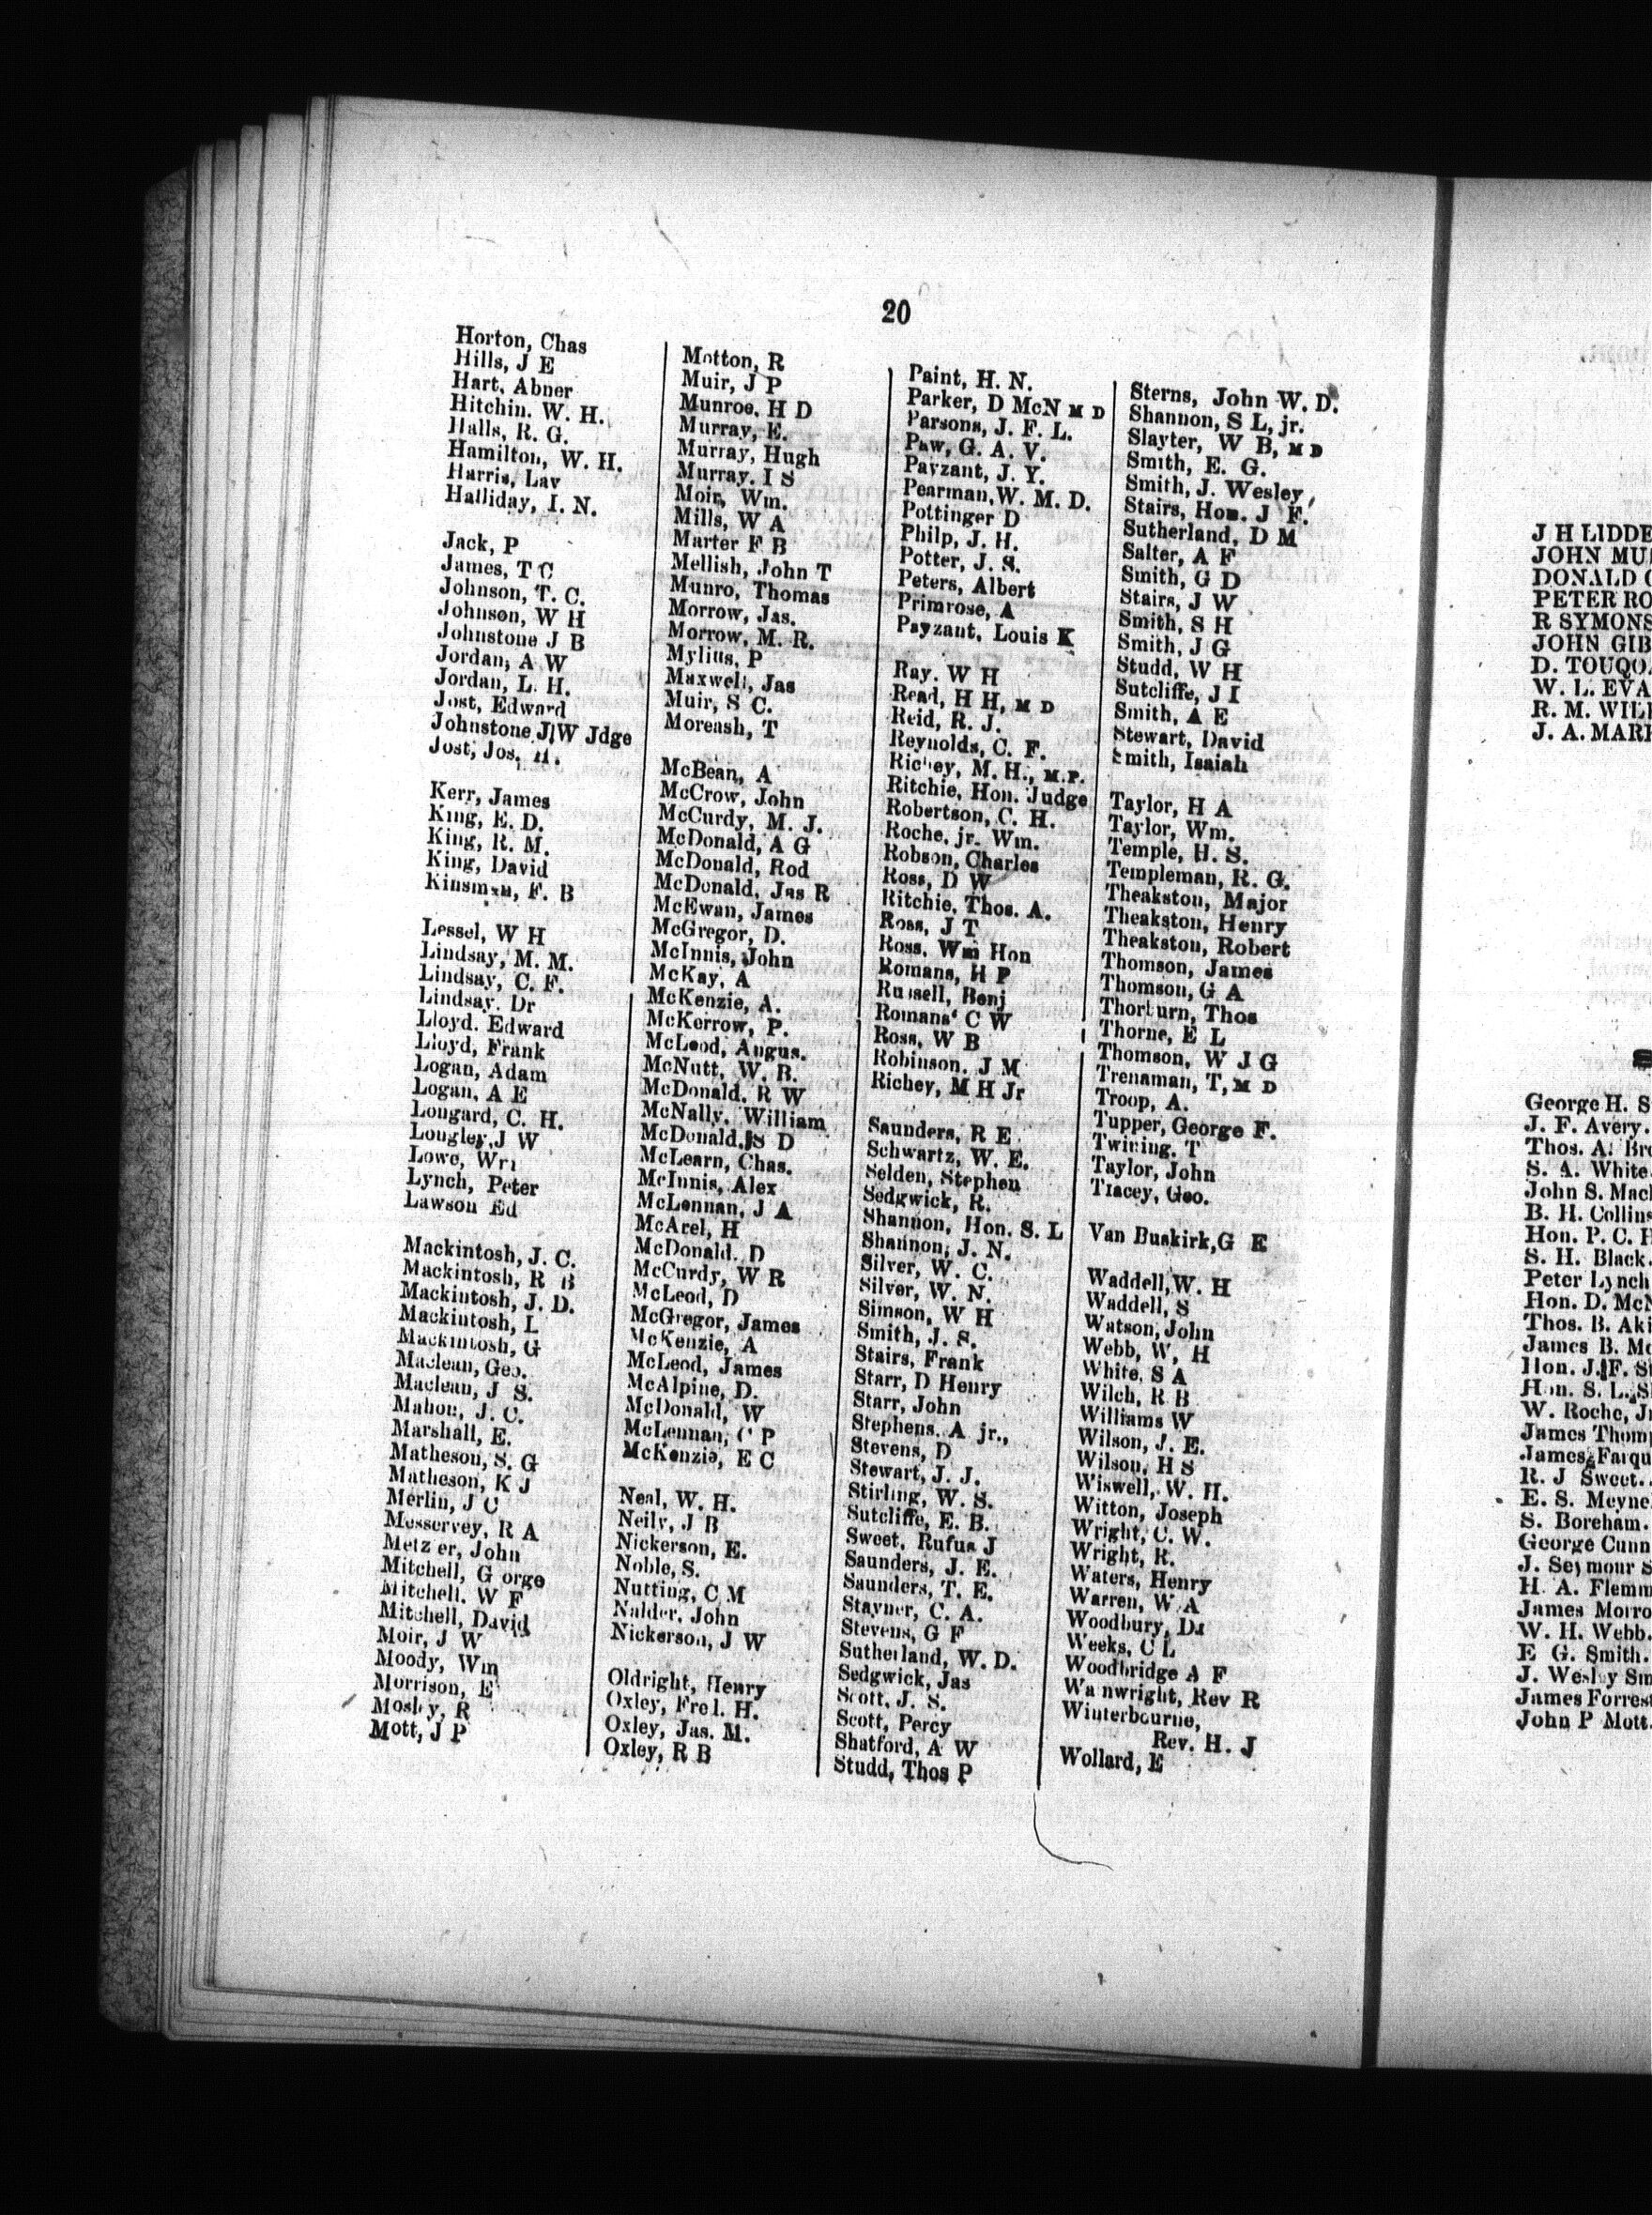 20
Horton, Chas
Hills, J E
Hart, Abner
Hitchin. W. H.
Halls, R. G.
Hamilton, W. H.
Harris, Lav
Halliday, I. N.
Jack, P
James, T C
Johnson, T. C.
Johnson, W H
Johnstone J B
Jordan, A W
Jordan, L. H.
Jost, Edward
Johnstone J W Jdge
Jost, Jos. H.
Kerr, James
King, E. D.
King, R. M.
King, David
Kinsman, F. B
Lessel, W H
Lindsay, M. M.
Lindsay, C. F.
Lindsay. Dr
Lloyd. Edward
Lloyd, Frank
Logan, Adam
Logan, A E
Longard, C. H.
Longley, J W
Lowe, Wm
Lynch, Peter
Lawson Ed
Mackintosh, J. C.
Mackintosh, R B
Mackintosh, J. D.
Mackintosh, L
Mackintosh, G
Maclean, Geo.
Maclean, J S.
Mahon, J. C.
Marshall, E.
Matheson, S. G
Matheson, K J
Merlin, J C
Messervey, R A
Metz er, John
Mitchell, G orge
Mitchell. W F
Mitchell, David
Moir, J W
Moody, Wm
Morrison, E
Mosley, R
Mott, J P
Motton, R
Muir, J P
Munroe, H D
Murray, E.
Murray, Hugh
Murray. I S
Moir, Wm.
Mills, W A
Marter F B
Mellish, John T
Munro, Thomas
Morrow, Jas.
Morrow, M. R.
Mylius, P
Maxwell, Jas
Muir, S C.
Moreash, T
McBean, A
McCrow, John
McCurdy, M. J.
McDonald, A G
McDonald, Rod
McDonald, Jas R
McEwan, James
McGregor, D.
McInnis, John
McKay, A
McKenzie, A.
McKerrow, P.
McLeod, Angus.
McNutt, W. B.
McDonald, R W
McNally, William
McDonald, S D
McLearn, Chas.
McInnis, Alex
McLennan, J A
McArel, H
McDonald, D
McCurdy, W R
McLeod, D
McGregor, James
McKenzie, A
McLeod, James
McAlpine, D.
McDonald, W
McLennan, C P
McKenzie, E C
Neal, W. H.
Neily, J B
Nickerson, E.
Noble, S.
Nutting, C M
Nalder, John
Nickerson, J W
Oldright, Henry
Oxley, Fred. H.
Oxley, Jas. M.
Oxley, R B
Paint, H. N.
Parker, D McN M D
Parsons, J. F. L.
Paw, G. A. V.
Payzant, J. Y.
Pearman, W. M. D.
Pottinger D
Philp, J. H.
Potter, J. S.
Peters, Albert
Primrose, A
Payzant, Louis K
Ray. W H
Read, H H, M D
Reid, R. J.
Reynolds, C. F.
Richey, M. H., M.P.
Ritchie, Hon. Judge
Robertson, C. H.
Roche, jr. Wm.
Robson, Charles
Ross, D W
Ritchie, Thos. A.
Ross, J T
Ross. Wm Hon
Romans, H P
Russell, Benj
Romans' C W
Ross, W B
Robinson. J M
Richey, M H Jr
Saunders, R E
Schwartz, W. E.
Selden, Stephen
Sedgwick, R.
Shannon, Hon. S. L
Shannon, J. N.
Silver, W. C.
Silver, W. N.
Simson, W H
Smith, J. S.
Stairs, Frank
Starr, D Henry
Starr, John
Stephens. A jr.,
Stevens, D
Stewart, J. J.
Stirling, W. S.
Sutcliffe, E. B.
Sweet, Rufus J
Saunders, J. E.
Saunders, T. E.
Stayner, C. A.
Stevens, G F
Sutherland, W. D.
Sedgwick, Jas
Scott, J. S.
Scott, Percy
Shatford, A W
Studd, Thos P
Sterns, John W. D.
Shannon, S L, jr.
Slayter, W B, M D
Smith, E. G.
Smith, J. Wesley
Stairs, Hon. J F.
Sutherland, D M
Salter, A F
Smith, G D
Stairs, J W
Smith, S H
Smith, J G
Studd, W H
Sutcliffe, J I
Smith, A E
Stewart, David
Smith, Isaiah
Taylor, H A
Taylor, Wm.
Temple, H. S.
Templeman, R. G.
Theakston, Major
Theakston, Henry
Theakston, Robert
Thomson, James
Thomson, G A
Thorburn, Thos
Thorne, E L
Thomson, W J G
Trenaman, T, M D
Troop, A.
Tupper, George F.
Twining. T
Taylor, John
Tracey, Geo.
Van Buskirk, G E
Waddell, W. H
Waddell, S
Watson, John
Webb, W, H
White, S A
Wilch, R B
Williams W
Wilson, J. E.
Wilson, H S
Wiswell, W. H.
Witton, Joseph
Wright, C. W.
Wright, R.
Waters, Henry
Warren, W A
Woodbury, Dr
Weeks, C L
Woodbridge A F
Wa nwright, Rev R
Winterbourne,
Rev. H. J
Wollard, E
J H LIDDE
JOHN MU
DONALD
PETER RO
R SYMONS
JOHN GIB
D. TOUQO
W. L. EVA
R. M. WIL
J. A. MAR
George H. S
J. F. Avery.
Thos. A. Br
S. A. White
John S. Mac
B. H. Collins
Hon. P. C. H
S. H. Black.
Peter Lynch
Hon. D. McN
Thos. B. Aki
James B. Mo
Hon. J. F. S
Hon. S. L. S
W. Roche, J
James Thom
James Farqu
R. J Sweet.
E. S. Meyne
S. Boreham.
George Cunn
J. Seymour S
H. A. Flemm
James Morro
W. H. Webb.
E G. Smith.
J. Wesley Sm
James Forres
John P Mott.